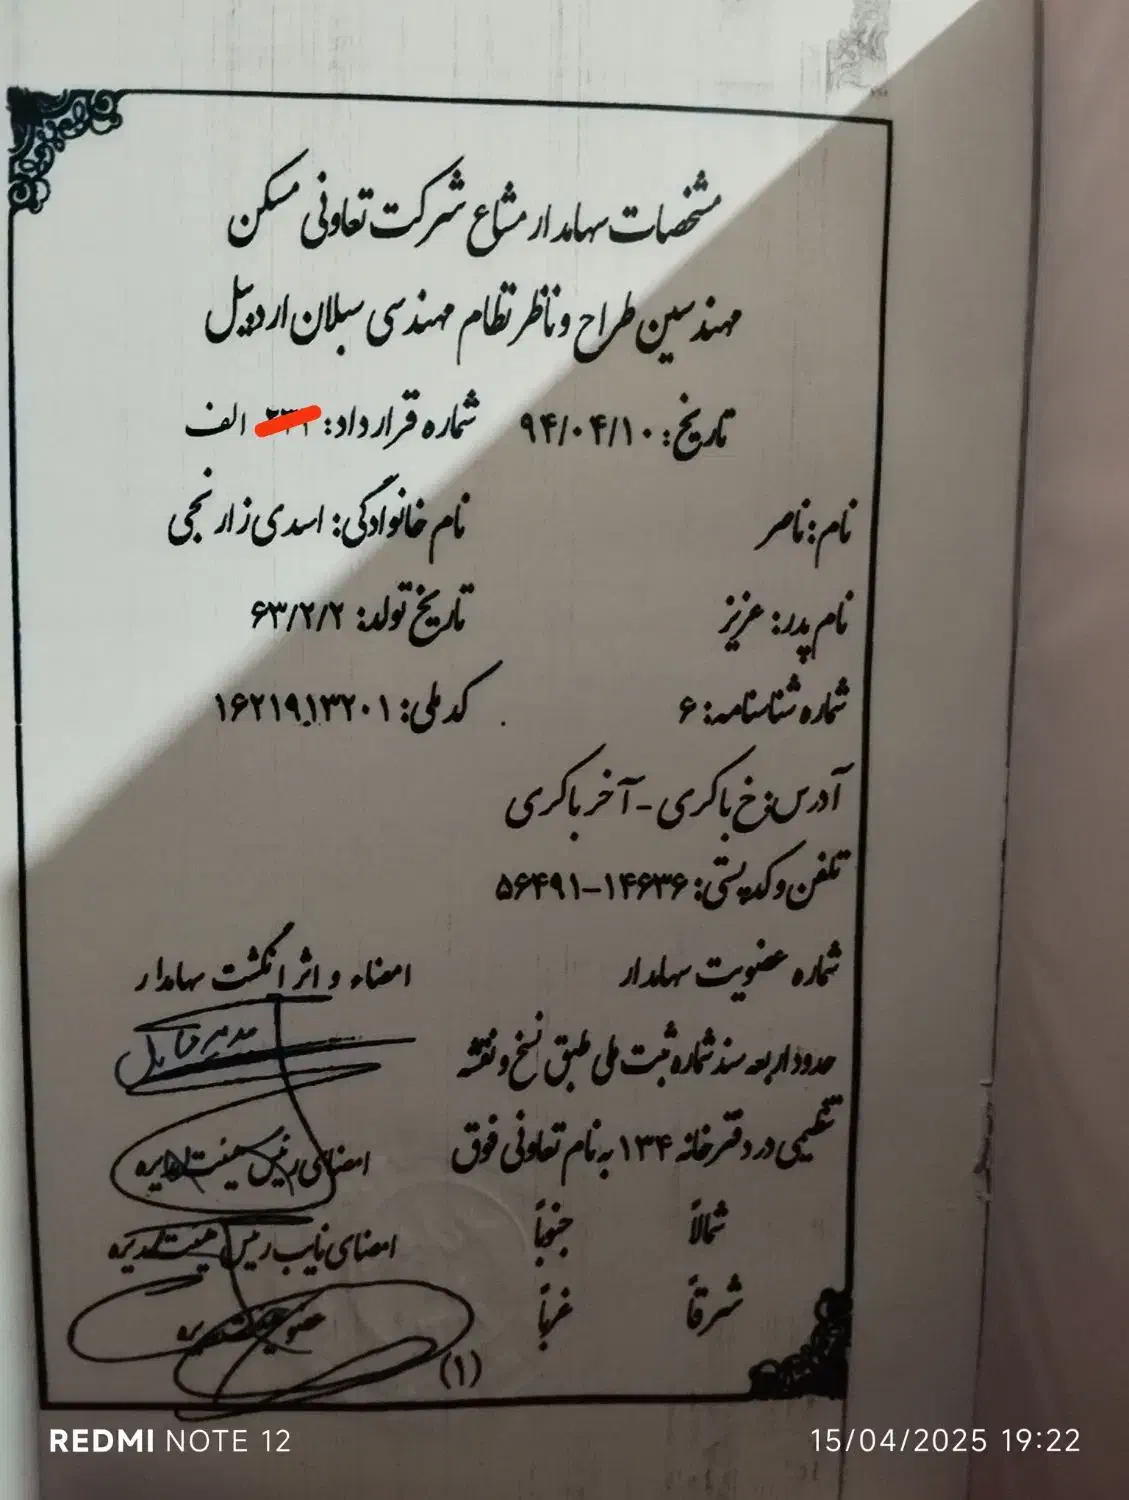 مشخصات سهامدار مشاع شرکت تعاونی مسکن
مهندسین طراح و ناظر نظام مهندسی سبلان اردبیل
تاریخ: ۹۴/۰۴/۱۰ شماره قرارداد: الف
نام: ناصر نام خانوادگی: اسدی زارنجی
نام پدر: عزیز تاریخ تولد: ۶۳/۲/۲
شماره شناسنامه: ۶ کد ملی: ۱۶۲۱۹۱۳۲۰۱
آدرس: خ باکری - آخر باکری
تلفن و کد پستی: ۵۶۴۹۱-۱۴۶۳۶
شماره عضویت سهامدار امضاء و اثر انگشت سهامدار
مدیر عامل
حدود اربعه سند شماره ثبت ملی طبق نسخ و نقشه
تنظیمی در دفترخانه ۱۳۴ به نام تعاونی فوق امضای رئیس هیئت مدیره
شمالاً جنوباً امضای نایب رئیس هیئت مدیره
شرقاً غرباً عضو هیئت مدیره
(۱)
REDMI NOTE 12 15/04/2025 19:22